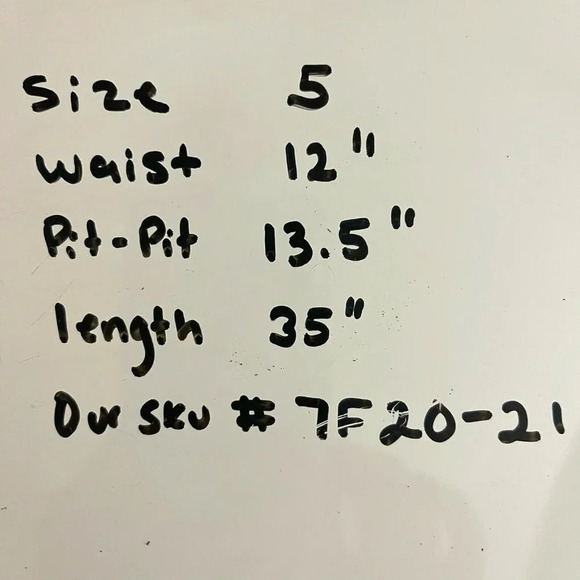 Size 5
Waist 12"
Pit-Pit 13.5"
length 35"
Our SKU # 7F20-21